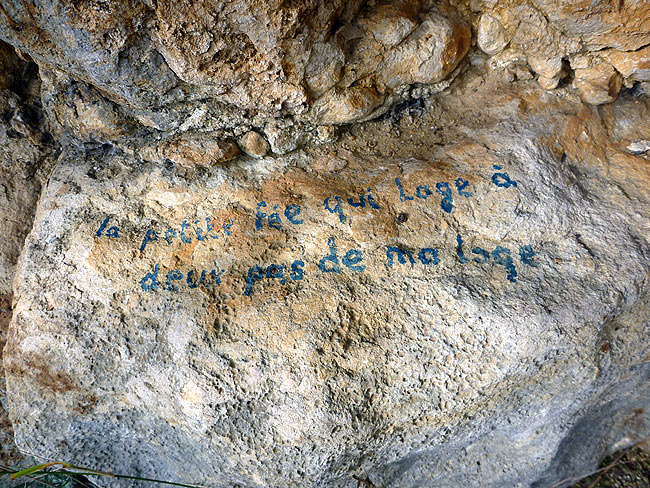 la petite fée qui loge à
deux pas de ma loge